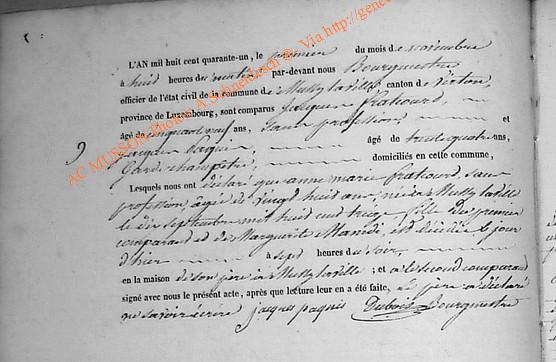 L'AN mil huit cent quarante-un, le premier du mois de novembre
à huit heures du matin par-devant nous Bourgmestre
officier de l'état civil de la commune de Mussy la ville canton de Virton,
province de Luxembourg, sont comparus Jacques
âgé de cinquante neuf ans, sans profession, et
9
âgé de trente quatre ans,
Garde champêtre, domiciliés en cette commune,
Lesquels nous ont déclaré que anne marie sans
profession, âgée de vingt huit ans, née à Mussy la ville
le dix septembre mil huit cent treize fille du premier
comparant et de Marguerite est décédée le jour
d'hier à sept heures du soir,
en la maison de son père à Mussy la ville ; et a le second comparant
signé avec nous le présent acte, après que lecture leur en a été faite, le père a déclaré
ne savoir écrire jacques Dubois Bourgmestre
AC MUSSON Photos A.Schneidesch ©. Via http://gene